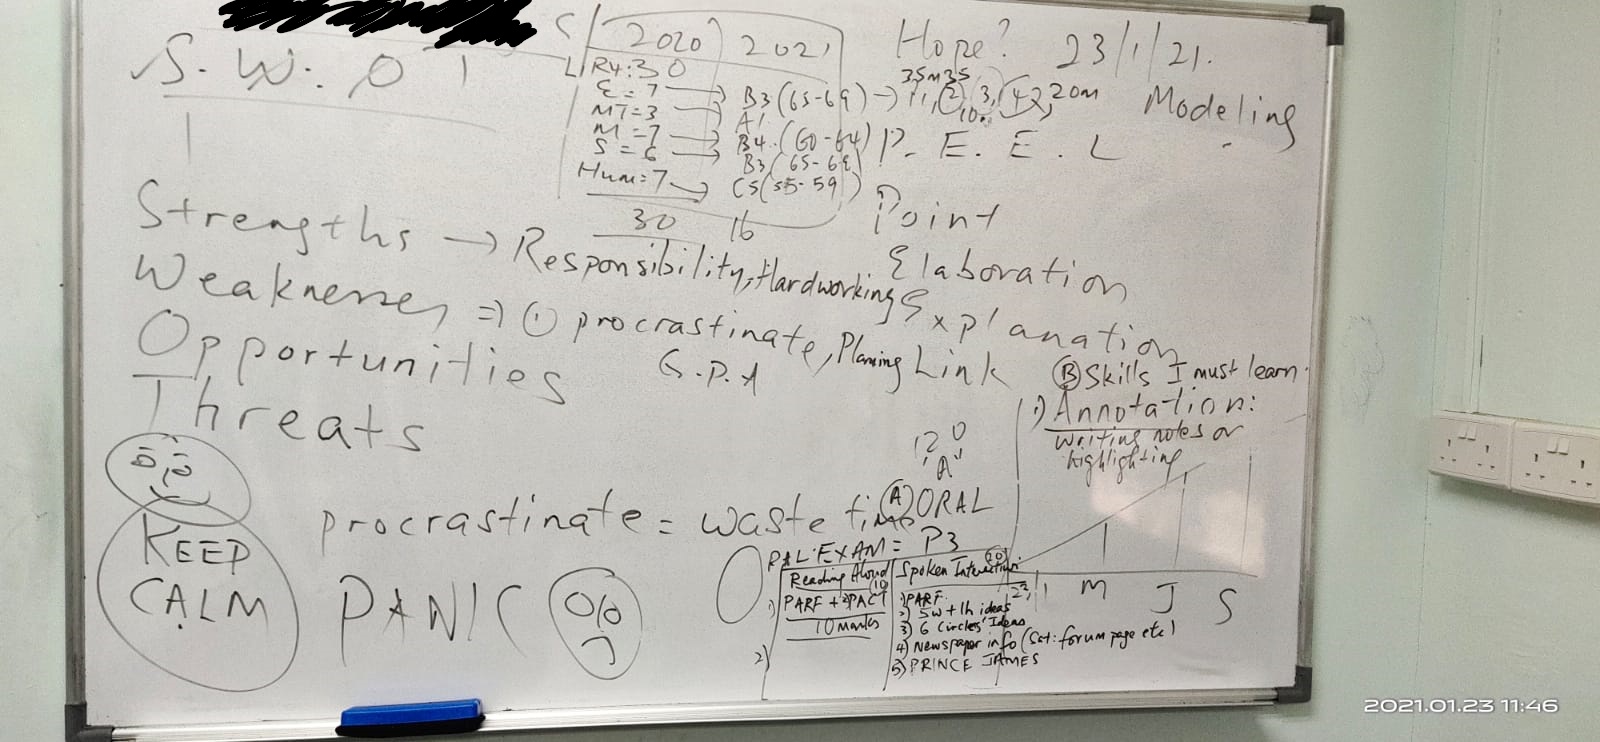 S. W. O T
2020 2021
L1R4: 30
E = 7 → B3 (65-69) → 1, 2, 3, 4
35m 35
20m
MT = 3 → A1
M = 7 → B4 (60-64)
S = 6 → B3 (65-69)
Hum = 7 → C5 (55-59)
30 16
Hope? 23/1/21.
Modeling
P. E. E. L
Point
Elaboration
Explanation
Link
Strengths → Responsibility, Hardworking
Weaknesses ⇒ ① procrastinate, Planning
Opportunities
G.P.A
Threats
KEEP
CALM
procrastinate = waste time
PANIC
Ⓑ Skills I must learn:
1) Annotation:
writing notes or
highlighting
M J S
Ⓐ ORAL
ORAL EXAM = P3
Reading Aloud (10
1) PARF + 2PACT
10 marks
2)
Spoken Interaction: 20
1) PARF
2) 5W + 1h ideas
3) 6 Circles' Ideas
4) Newspaper info (Sat: forum page etc)
5) PRINCE JAMES
2021.01.23 11:46